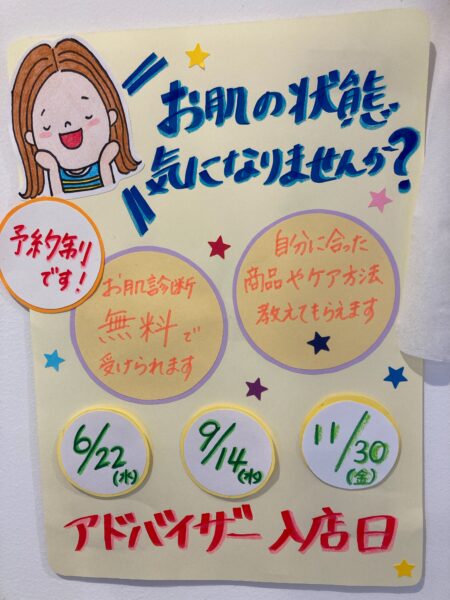 お肌の状態
気になりませんか?
予約制り
です!
お肌診断
無料で
受けられます
自分に合った
商品やケア方法
教えてもらえます
6/22
(水)
9/14
(水)
11/30
(金)
アドバイザー入店日